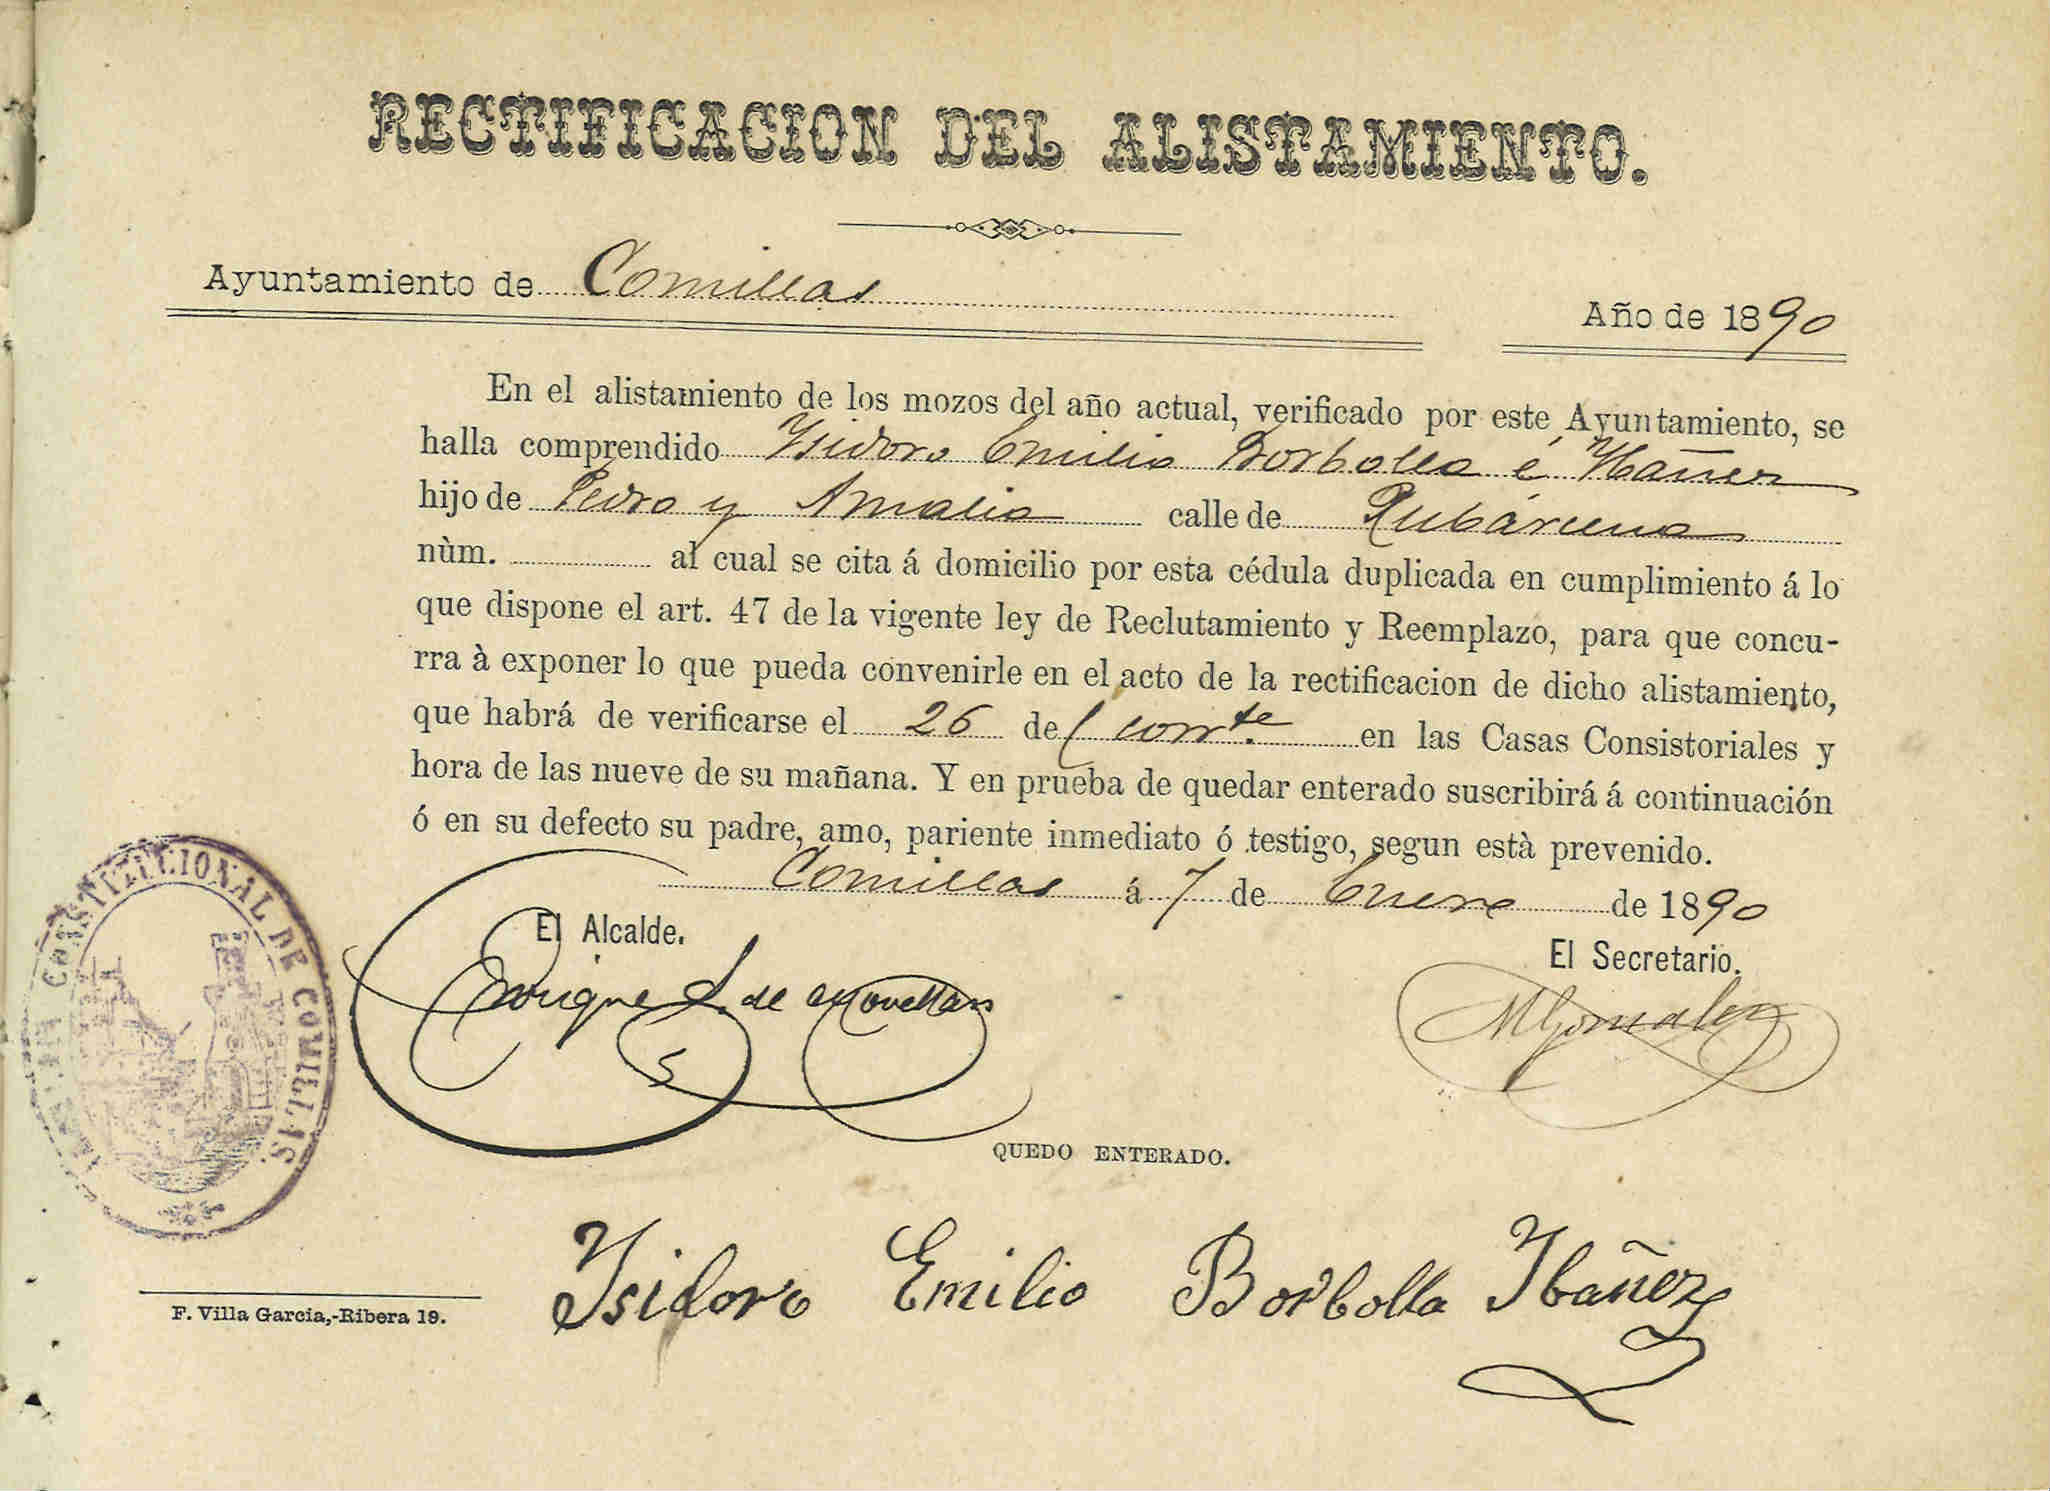 RECTIFICACION DEL ALISTAMIENTO.
Ayuntamiento de Comillas
Año de 1890
En el alistamiento de los mozos del año actual, verificado por este Ayuntamiento, se
halla comprendido Ysidoro Emilio Borbolla é Ybáñez
hijo de Pedro y Amalia calle de Rubárcena
nùm. al cual se cita á domicilio por esta cédula duplicada en cumplimiento á lo
que dispone el art. 47 de la vigente ley de Reclutamiento y Reemplazo, para que concu-
rra à exponer lo que pueda convenirle en el acto de la rectificacion de dicho alistamiento,
que habrá de verificarse el 26 del corrte. en las Casas Consistoriales y
hora de las nueve de su mañana. Y en prueba de quedar enterado suscribirá á continuación
ó en su defecto su padre, amo, pariente inmediato ó testigo, segun està prevenido.
Comillas á 7 de Enero de 1890
El Alcalde.
El Secretario.
Enrique S. de Movellan
M Gonzalez
CONSTITUCIONAL DE COMILLAS
QUEDO ENTERADO.
Ysidoro Emilio Borbolla Ybañez
F. Villa Garcia,-Ribera 19.